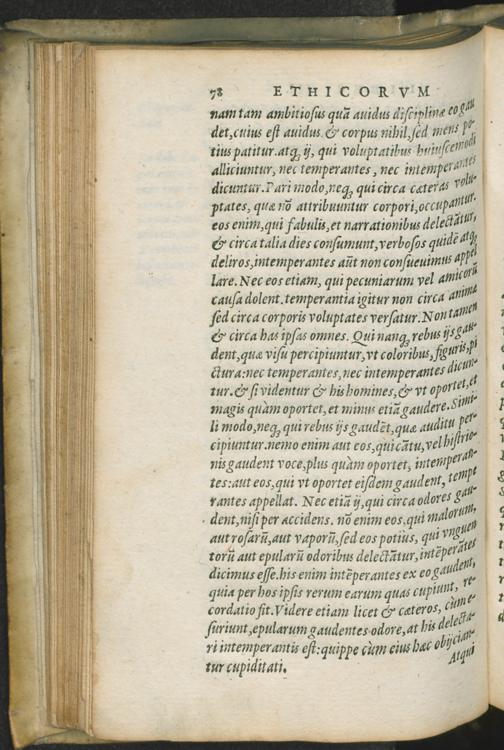 78 ETHICORVM
nam tam ambitiosus quã auidus disciplinæ eo gau
det, cuius est auidus. & corpus nihil, sed mens po-
tius patitur. atq; ij, qui voluptatibus huiuscemodi
alliciuntur, nec temperantes, nec intemperantes
dicuntur. Pari modo, neq; qui circa cæteras volu-
ptates, quæ nõ attribuuntur corpori, occupantur.
eos enim, qui fabulis, et narrationibus delectãtur,
& circa talia dies consumunt, verbosos quidẽ atq;
deliros, intemperantes aũt non consueuimus appel
lare. Nec eos etiam, qui pecuniarum vel amicorũ
causa dolent. temperantia igitur non circa animæ
sed circa corporis voluptates versatur. Non tamen
& circa has ipsas omnes. Qui nanq; rebus ijs gau-
dent, quæ visu percipiuntur, vt coloribus, figuris, pi
ctura: nec temperantes, nec intemperantes dicun-
tur. & si videntur & his homines, & vt oportet, et
magis quàm oportet, et minus etiã gaudere. Simi-
li modo, neq; qui rebus ijs gaudẽt, quæ auditu per-
cipiuntur. nemo enim aut eos, qui cãtu, vel histrio-
nis gaudent voce, plus quàm oportet, intemperan-
tes: aut eos, qui vt oportet eisdem gaudent, tempe
rantes appellat. Nec etiã ij, qui circa odores gau-
dent, nisi per accidens. nõ enim eos, qui malorum,
aut rosarũ, aut vaporũ, sed eos potius, qui vnguen
torũ aut epularũ odoribus delectãtur, intẽperãtes
dicimus esse. his enim intẽperantes ex eo gaudent,
quia per hos ipsis rerum earum quas cupiunt, re-
cordatio fit. Videre etiam licet & cæteros, cùm e-
suriunt, epularum gaudentes odore, at his delecta-
ri intemperantis est: quippe cùm eius hæc obijcian-
tur cupiditati.
Atqui